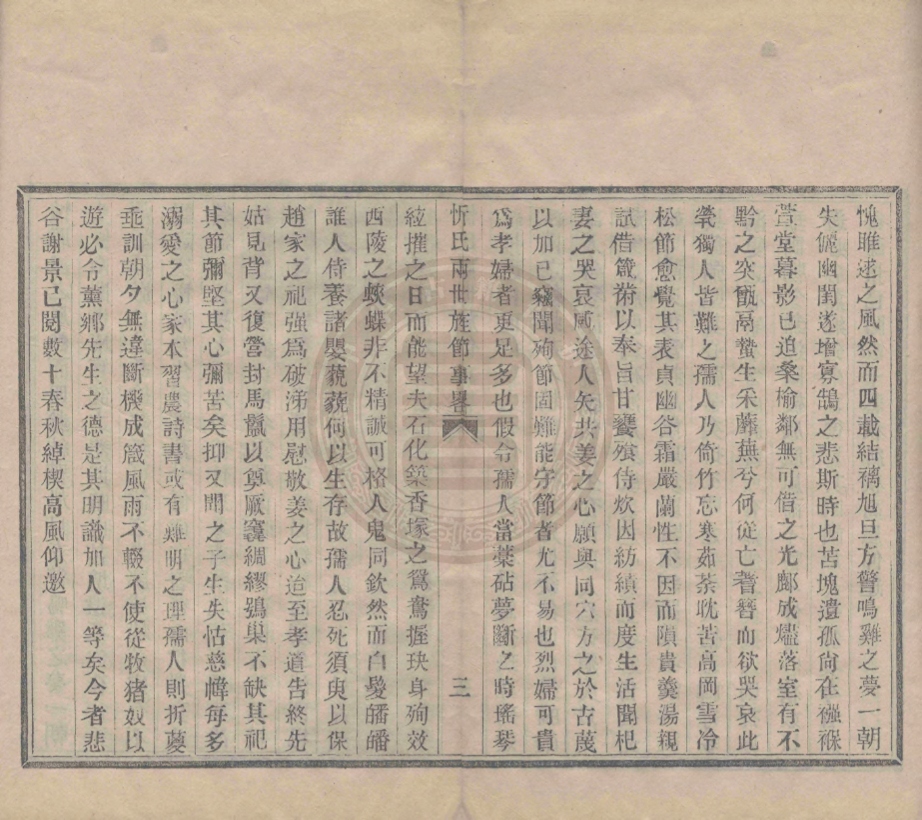 愧雎逑之風然而四載結褵旭旦方警鳴雞之夢一朝
失儷幽閨遂增寡鵠之悲斯時也苦塊遺孤尙在襁褓
萱堂暮影已迫桑榆鄰無可借之光鄘成燼落室有不
黔之突甑鬲蟄生釆蘼蕪兮何從亡蓍簪而欲哭哀此
煢獨人皆難之孺人乃倚竹忘寒茹荼耽苦高岡雪冷
松節愈覺其表貞幽谷霜嚴蘭性不因而隕貴羹湯親
試借箴術以奉旨甘饔飧侍炊因紡績而度生活聞杞
妻之哭哀風途人矢共姜之心願與同穴方之於古蔑
以加已竊聞殉節固難能守節者尤不易也烈婦可貴
爲孝婦者更足多也假令孺人當藁砧夢斷之時瑤琴
忻氏兩世旌節事畧
三
絃摧之日而能望夫石化築香塚之鴛鴦握玦身殉效
西陵之蛺蝶非不精誠可格人鬼同欽然而白髮皤皤
誰人侍養諸嬰藐藐何以生存故孺人忍死須臾以保
趙家之祀强爲破涕用慰敬姜之心迨至孝道告終先
姑見背又復營封馬鬛以奠厥窀綢繆鴞巢不缺其祀
其節彌堅其心彌苦矣抑又聞之子生失怙慈幃每多
溺愛之心家本習農詩書或有難明之理孺人則折葼
垂訓朝夕無違斷機成箴風雨不輟不使從牧豬奴以
遊必令薰鄉先生之德是其明識加人一等矣今者悲
谷謝景已閱數十春秋綽楔高風仰邀